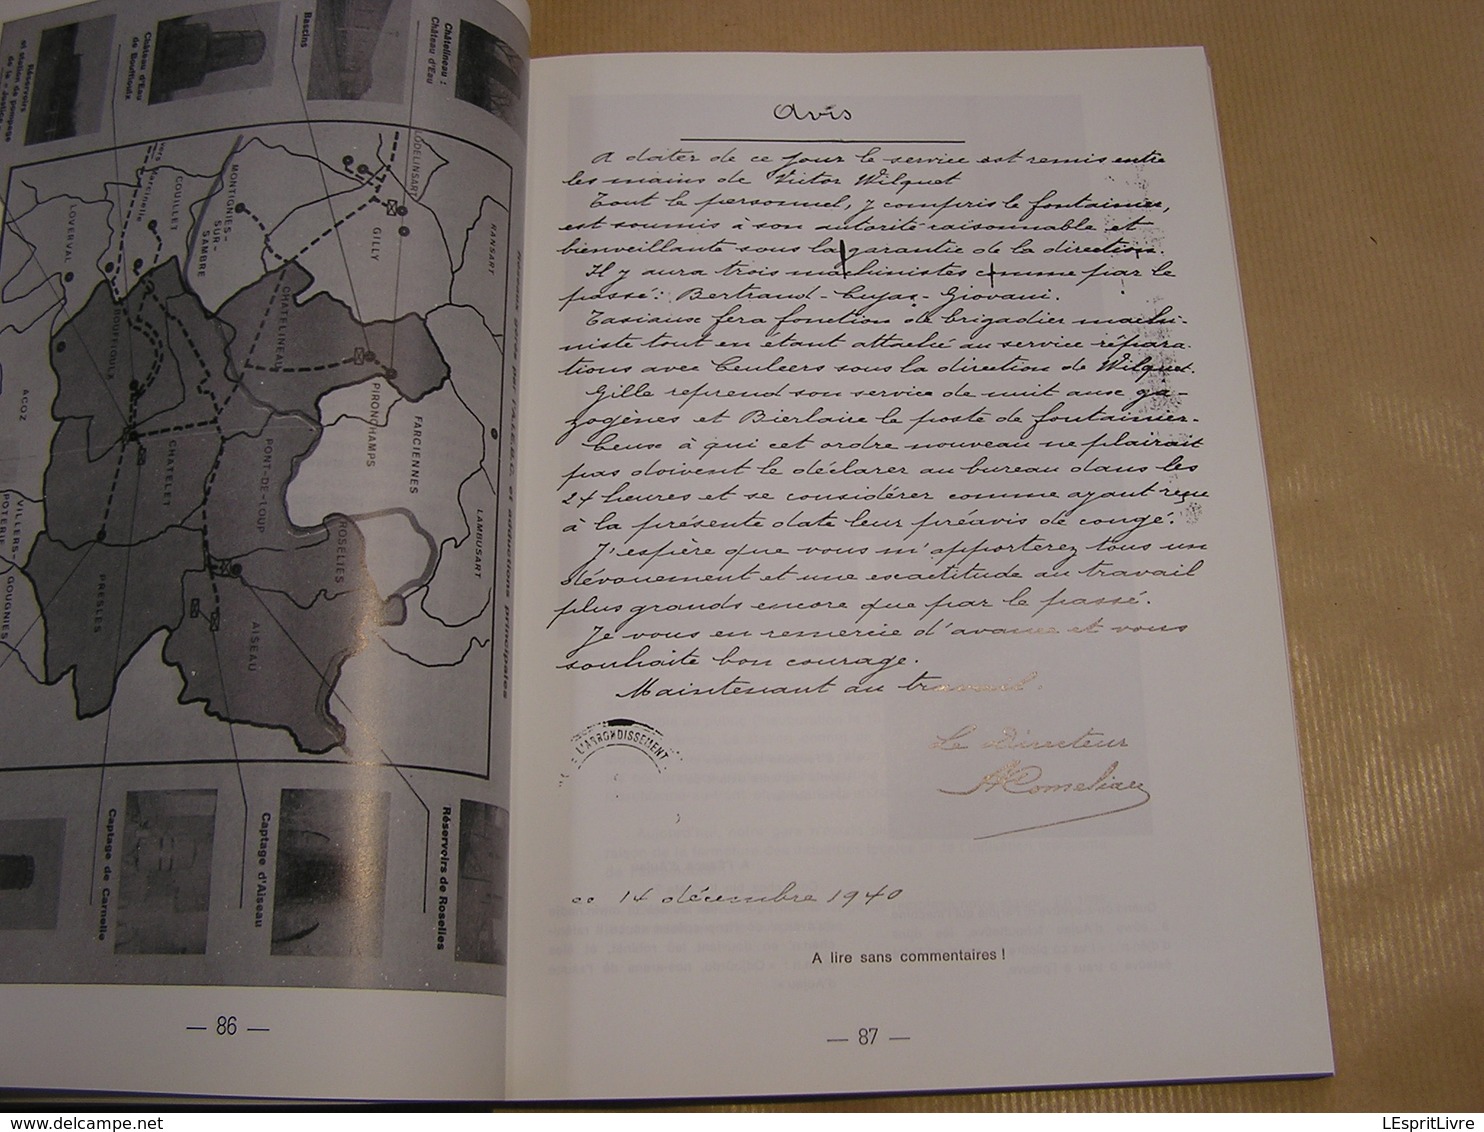 Réservoirs
et station de pompage
de la « Justice »
Château d'Eau
de Bouffioulx
Bascins
Châtelineau :
Château d'Eau
vers
Marcinelle
COUILLET
MONTIGNIES-
SUR-
SAMBRE
LODELINSART
LOVERVAL
GILLY
RANSART
BOUFFIOULX
CHATELINEAU
ACOZ
PIRONCHAMPS
FARCIENNES
CHATELET
PONT-DE-LOUP
VILLERS-
POTERIE
GOUGNIES
PRESLES
ROSELIES
LAMBUSART
AISEAU
Réseaux gérés par l'A.I.E.B.C. et adductions principales
Captage de Carnelle
Captage d'Aiseau
Réservoirs de Roselies
— 86 —
Avis
A dater de ce jour le service est remis entre
les mains de Victor Wilquet
Tout le personnel, y compris le fontainier,
est soumis à son autorité raisonnable et
bienveillante sous la garantie de la direction.
Il y aura trois machinistes comme par le
passé : Bertrand - Cujas - Giovani.
Tasiaux fera fonction de brigadier machi-
niste tout en étant attaché au service répara-
tions avec Ceuleers sous la direction de Wilquet.
Gille reprend son service de nuit aux ga-
zogènes et Bierlaire le poste de fontainier.
Ceux à qui cet ordre nouveau ne plairait
pas doivent le déclarer au bureau dans les
24 heures et se considérer comme ayant reçu
à la présente date leur préavis de congé.
J'espère que vous m'apporterez tous un
dévouement et une exactitude au travail
plus grands encore que par le passé.
Je vous en remercie d'avance et vous
souhaite bon courage.
Maintenant au travail.
L'ARRONDISSEMENT
Le Directeur
ce 14 décembre 1940
A lire sans commentaires !
— 87 —
LEspritLivre